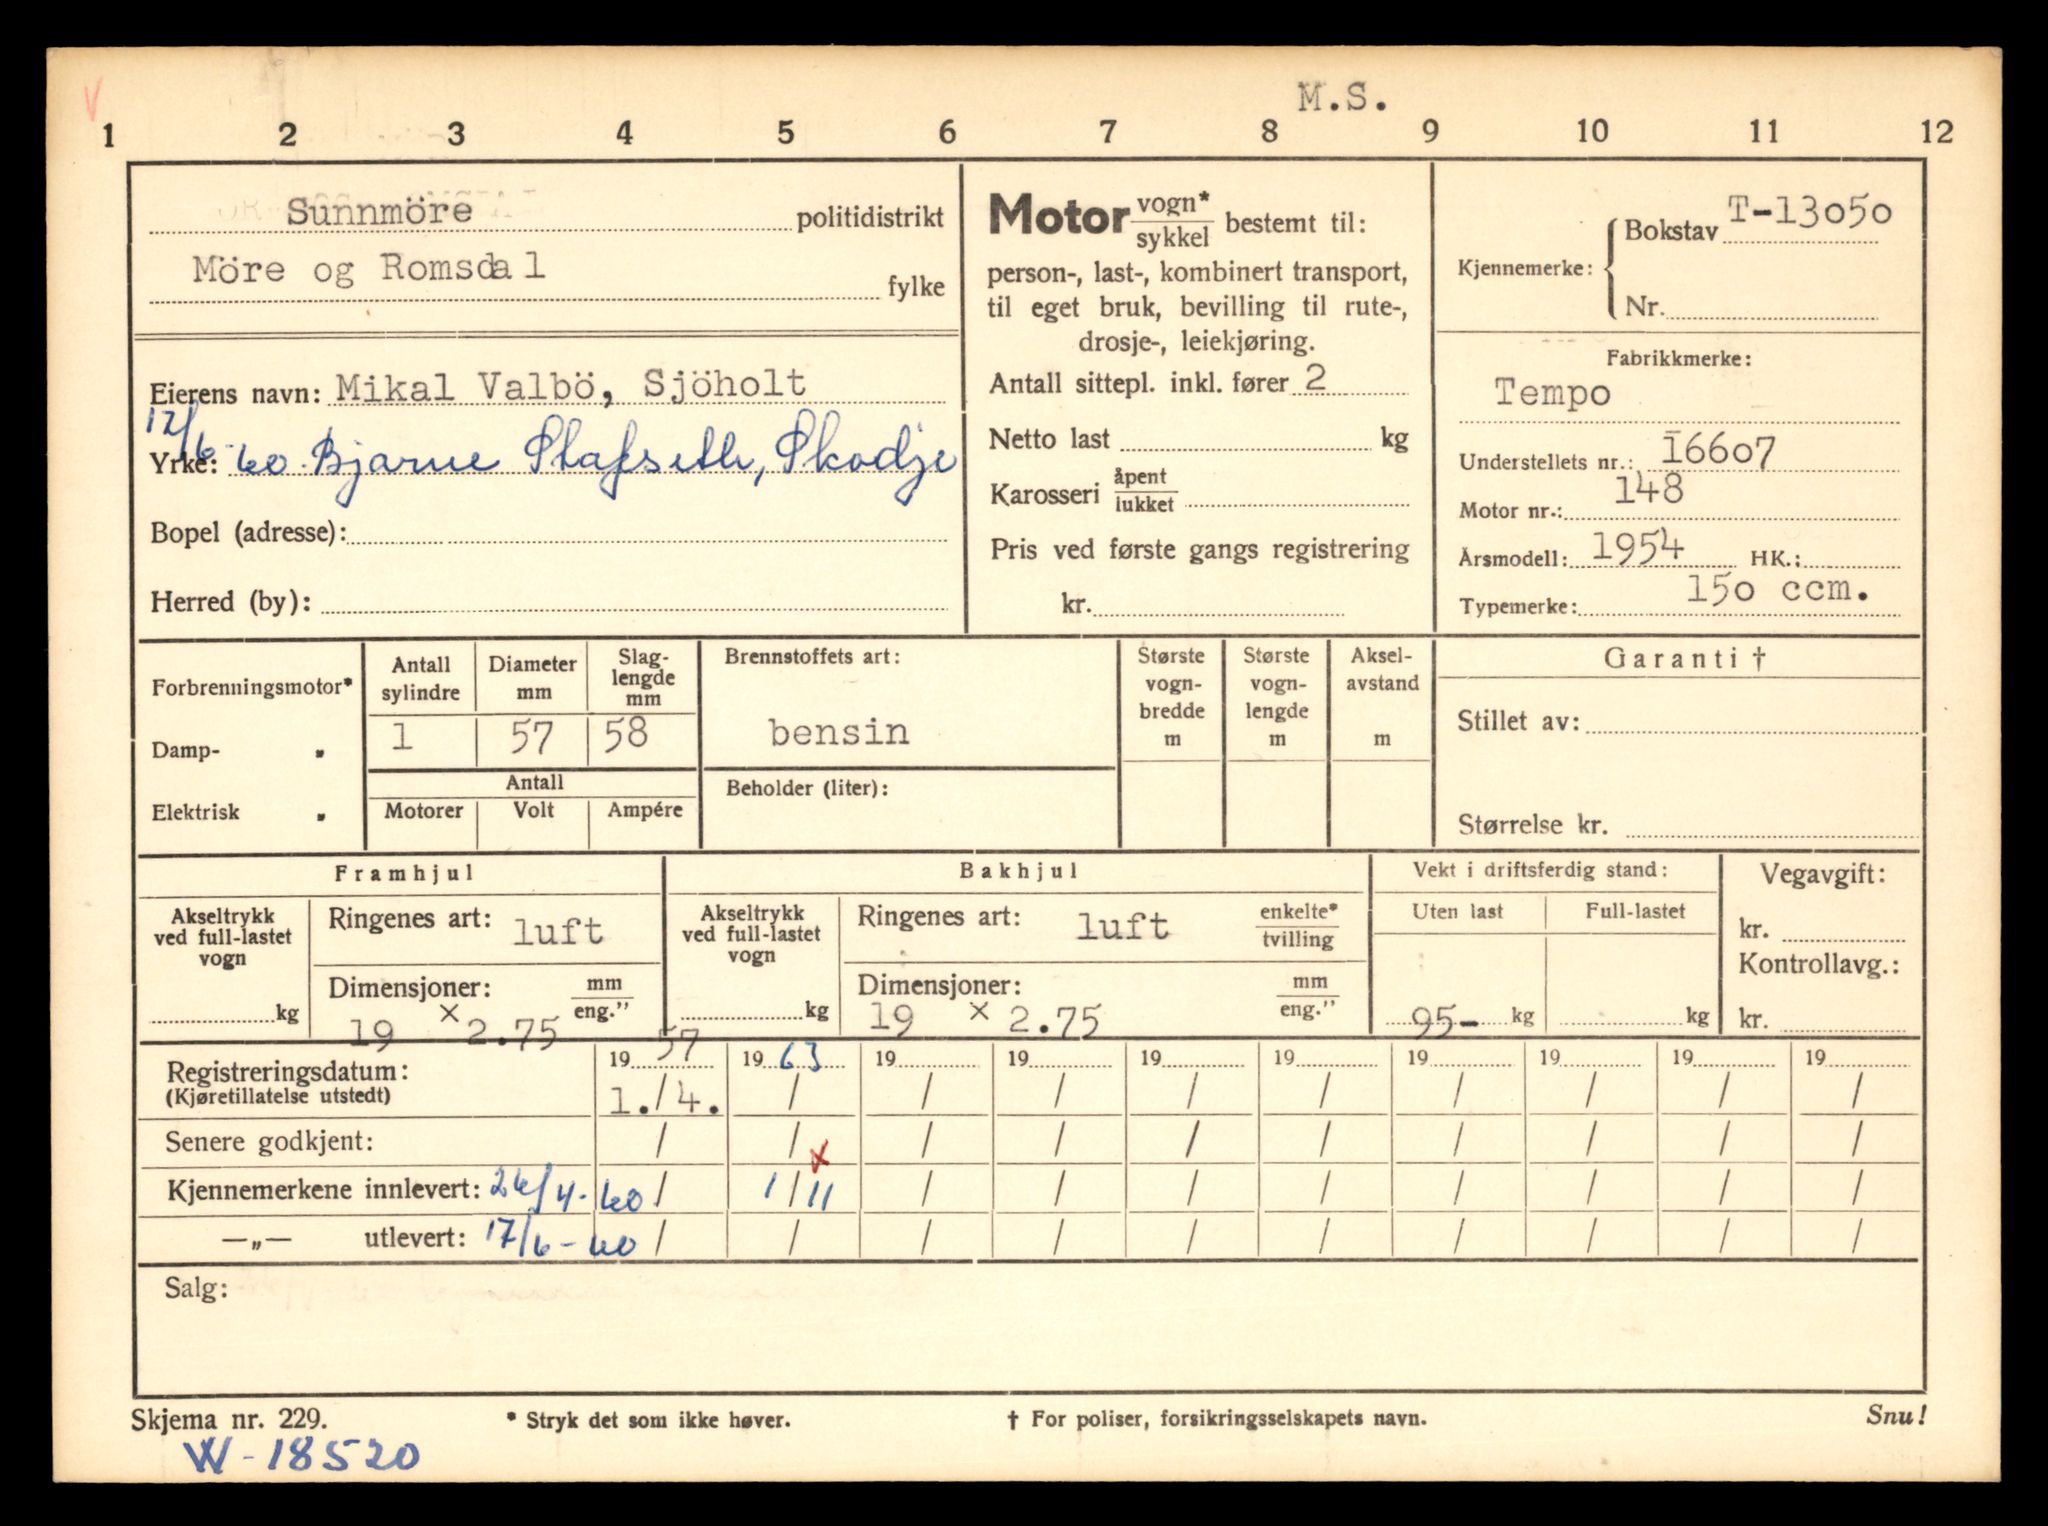 V
M.S.
1 2 3 4 5 6 7 8 9 10 11 12
Sunnmöre politidistrikt
Möre og Romsdal fylke
Eierens navn: Mikal Valbö, Sjöholt
17/6-60. Bjarne Stafseth, Skodje
Yrke:
Bopel (adresse):
Herred (by):
Motor vogn* / sykkel bestemt til:
person-, last-, kombinert transport,
til eget bruk, bevilling til rute-,
drosje-, leiekjøring.
Antall sittepl. inkl. fører 2
Netto last kg
Karosseri åpent / lukket
Pris ved første gangs registrering
kr.
Kjennemerke: Bokstav T-13050
Nr.
Fabrikkmerke:
Tempo
Understellets nr.: 16607
Motor nr.: 148
Årsmodell: 1954 HK.:
Typemerke: 150 ccm.
Forbrenningsmotor*
Damp- "
Elektrisk "
Antall sylindre Diameter mm Slag-lengde mm
1 57 58
Antall
Motorer Volt Ampére
Brennstoffets art:
bensin
Beholder (liter):
Største vogn-bredde m
Største vogn-lengde m
Aksel-avstand m
Garanti †
Stillet av:
Størrelse kr.
Framhjul
Akseltrykk ved full-lastet vogn
kg
Ringenes art: luft
Dimensjoner: mm / eng."
19 x 2.75
Bakhjul
Akseltrykk ved full-lastet vogn
kg
Ringenes art: luft enkelte* / tvilling
Dimensjoner: mm / eng."
19 x 2.75
Vekt i driftsferdig stand:
Uten last Full-lastet
95- kg kg
Vegavgift:
kr.
Kontrollavg.:
kr.
19 57 19 63 19 19 19 19 19 19 19 19
Registreringsdatum: 1./4. / / / / / / / / /
(Kjøretillatelse utstedt)
Senere godkjent: / / / / / / / / / /
x
Kjennemerkene innlevert: 26/4-60 / 1/11 / / / / / / / /
—„— utlevert: 17/6-60 / / / / / / / / / /
Salg:
Skjema nr. 229. * Stryk det som ikke høver. † For poliser, forsikringsselskapets navn. Snu!
W-18520